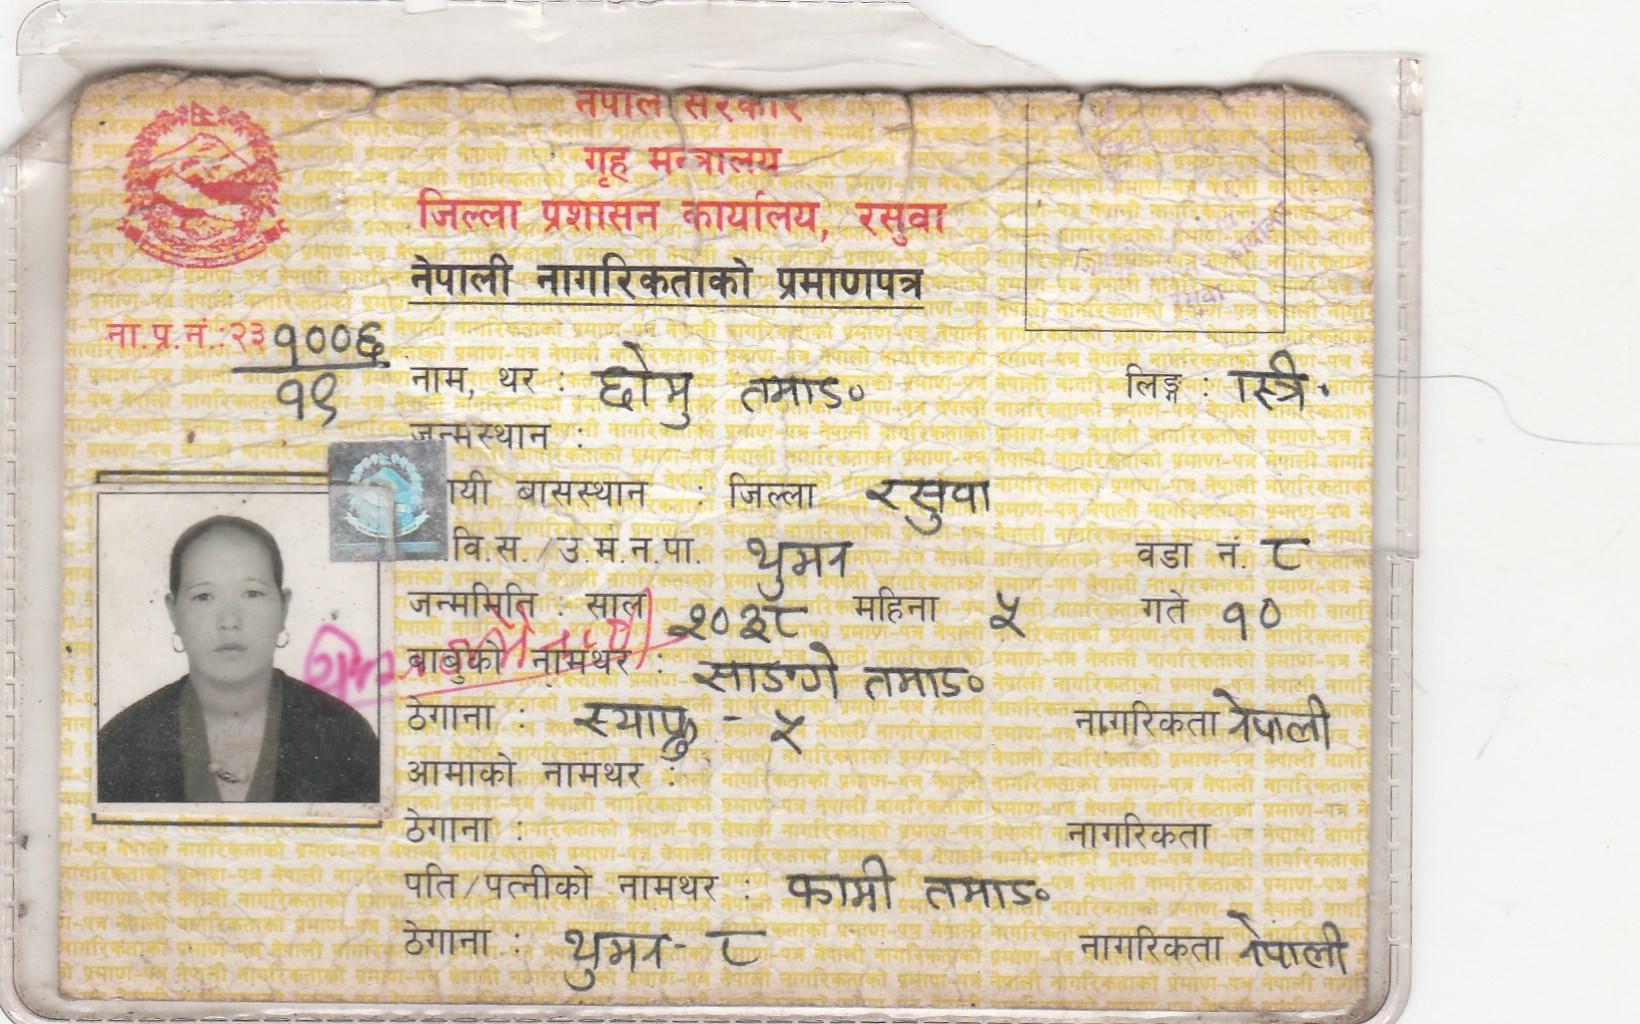 नेपाल सरकार
गृह मन्त्रालय
जिल्ला प्रशासन कार्यालय, रसुवा
नेपाली नागरिकताको प्रमाणपत्र
ना.प्र.नं.:२३ १००६
१९
नाम, थर : छोमु तमाङ लिङ्ग : स्त्रि.
जन्मस्थान :
ायी बासस्थान : जिल्ला रसुवा
वि.स./उ.म.न.पा. थुमन वडा नं. ८
जन्ममिति : साल २०३८ महिना ५ गते १०
बाबुको नामथर : साङ्गे तमाङ
ठेगाना : स्याफ्रु - ५ नागरिकता नेपाली
आमाको नामथर :
ठेगाना : नागरिकता
पति/पत्नीको नामथर : कामी तमाङ
ठेगाना : थुमन - ८ नागरिकता नेपाली